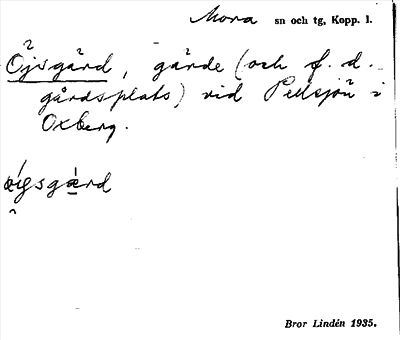 Mora sn och tg, Kopp. l.
Öjsgård, gärde (och f. d.
gårdsplats) vid Pellsjön i
Oxberg.
Bror Lindén 1935.